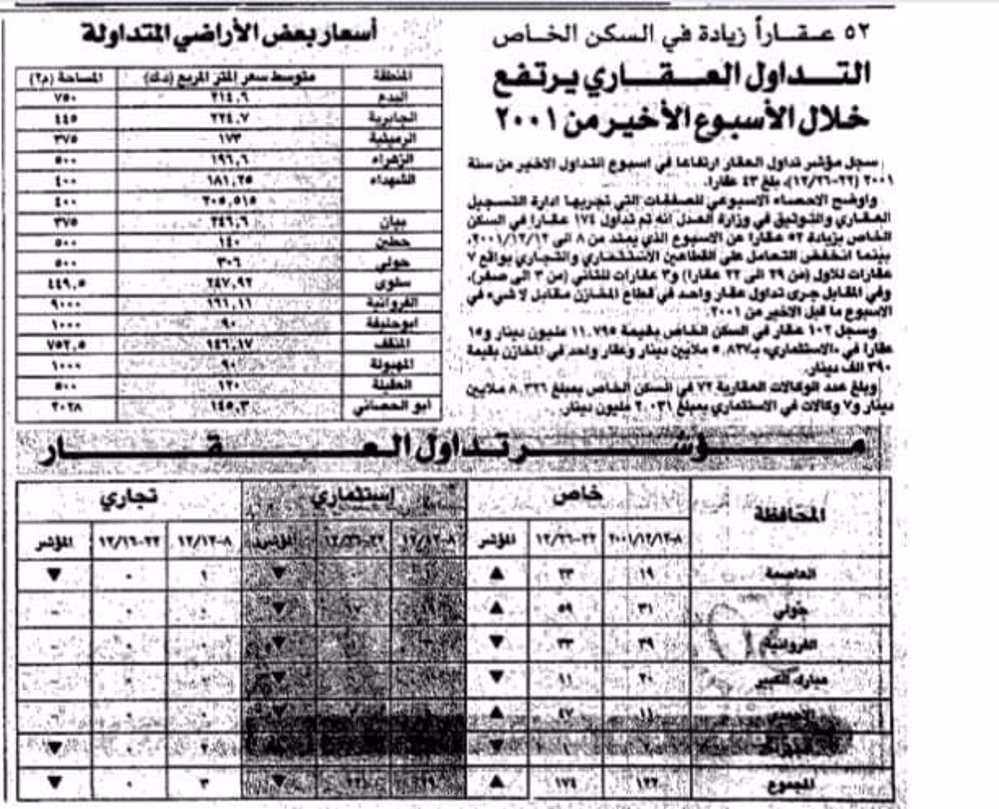 ٥٢ عقاراً زيادة في السكن الخاص
التداول العقاري يرتفع
خلال الأسبوع الأخير من ٢٠٠١
سجل مؤشر تداول العقار ارتفاعا في اسبوع التداول الاخير من سنة
٢٠٠١ (٢٢-١٢/٢٦)، بلغ ٤٣ عقارا.
واوضح الاحصاء الاسبوعي للصفقات التي تجريها ادارة التسجيل
العقاري والتوثيق في وزارة العدل انه تم تداول ١٧٤ عقارا في السكن
الخاص بزيادة ٥٢ عقارا عن الاسبوع الذي يمتد من ٨ الى ٢٠٠١/١٢/١٢،
بينما انخفض التعامل على القطاعين الاستثماري والتجاري بواقع ٧
عقارات للاول (من ٢٩ الى ٢٢ عقارا) و٣ عقارات للثاني (من ٣ الى صفر)،
وفي المقابل جرى تداول عقار واحد في قطاع المخازن مقابل لا شيء في
الاسبوع ما قبل الاخير من ٢٠٠١.
وسجل ١٠٢ عقار في السكن الخاص بقيمة ١١.٧٩٥ مليون دينار و١٥
عقارا في «الاستثماري» بـ٥.٨٣٧ ملايين دينار وعقار واحد في المخازن بقيمة
٣٩٠ الف دينار.
وبلغ عدد الوكالات العقارية ٧٢ في السكن الخاص بمبلغ ٨.٣٢٦ ملايين
دينار و٧ وكالات في الاستثماري بمبلغ ٢.٠٣١ مليون دينار.
أسعار بعض الأراضي المتداولة
المنطقة متوسط سعر المتر المربع (د.ك) المساحة (م٢)
البدع ٢١٤,٦ ٧٥٠
الجابرية ٢٢٤,٧ ٤٤٥
الرميثية ١٧٣ ٣٧٥
الزهراء ١٩٦,٦ ٥٠٠
الشهداء ١٨١,٢٥ ٤٠٠
٢٠٥,٥١٥ ٤٠٠
بيان ٢٤٦,٦ ٣٧٥
حطين ١٤٠ ٥٠٠
حولي ٣٠٦ ٥٠٠
سلوى ٢٤٧,٩٢ ٤٤٩,٥
الفروانية ١٦١,١١ ٩٠٠٠
ابوحليفة ٩٠ ١٠٠٠
المنقف ١٤٦,١٧ ٧٥٢,٥
المهبولة ٩٠ ١٠٠٠
العقيلة ١٢٠ ٥٠٠
أبو الحصاني ١٤٥,٣ ٢٠٢٨
مؤشر تداول العقار
المحافظة خاص إستثماري تجاري
٨-٢٠٠١/١٢/١٢ ٢٢-١٢/٢٦ المؤشر ٨-١٢/١٢ ٢٢-١٢/٢٦ المؤشر ٨-١٢/١٢ ٢٢-١٢/٢٦ المؤشر
العاصمة ١٩ ٢٣ ▲ ▼ ١ ٠ ▼
حولي ٣١ ٥٩ ▲ ▼ ٠ ٠ -
الفروانية ٣٩ ٣٣ ▼ ▼ ٠ ٠ -
مبارك الكبير ٢٠ ١١ ▼ ٠ ٠ -
الأحمدي ١١ ٤٧ ▲ ٠ ٠ -
▼ ٢ ٠ ▼
المجموع ١٢٢ ١٧٤ ▲ ٢٩ ٢٢ ▼ ٣ ٠ ▼